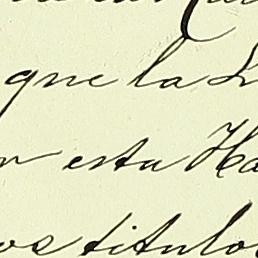 que la
esta Ha
os titulos